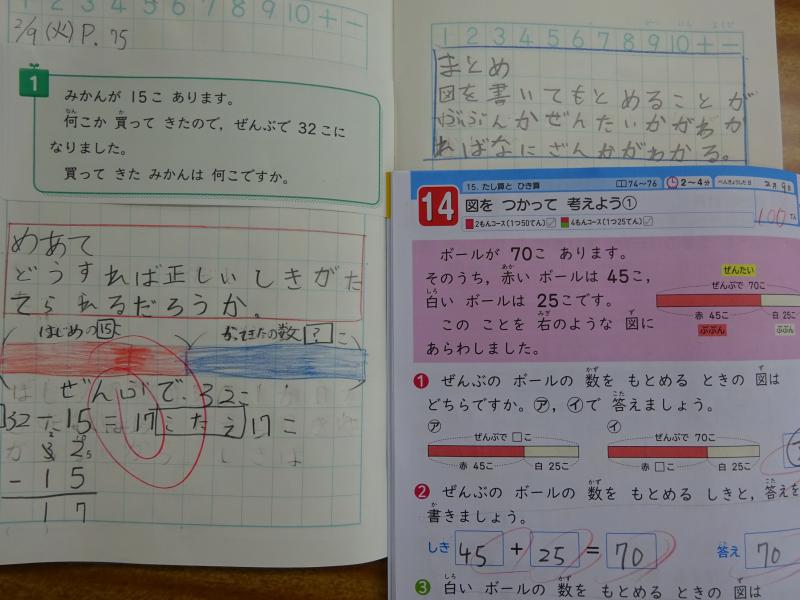 1 2 3 4 5 6 7 8 9 10 + −
2/9 (火) P. 75
1
みかんが 15こ あります。
何こか 買って きたので，ぜんぶで 32こに
なりました。
買って きた みかんは 何こですか。
めあて
どうすれば正しいしきがた
てられるだろうか。
はじめの15こ
かってきたの数 ? こ
ぜんぶで、32こ
32−15=17 こたえ 17こ
32
−15
17
1 2 3 4 5 6 7 8 9 10 + −
まとめ
図を書いてもとめることが
ぶぶんかぜんたいかがわか
ればなにざんかがわかる。
14
15. たし算と ひき算
74〜76
2〜4分
べんきょうした日
2月9日
図を つかって 考えよう①
2もんコース(1つ50てん)
4もんコース(1つ25てん)
100てん
ボールが 70こ あります。
そのうち，赤い ボールは 45こ，
白い ボールは 25こです。
この ことを 右のような 図に
あらわしました。
ぜんたい
ぜんぶで 70こ
赤 45こ 白 25こ
ぶぶん ぶぶん
1 ぜんぶの ボールの 数を もとめる ときの 図は
どちらですか。ア，イで 答えましょう。
ア
ぜんぶで □こ
赤 45こ 白 25こ
イ
ぜんぶで 70こ
赤 □こ 白 25こ
2 ぜんぶの ボールの 数を もとめる しきと，答えを
書きましょう。
しき 45 + 25 = 70 答え 70
3 白い ボールの 数を もとめる ときの 図は